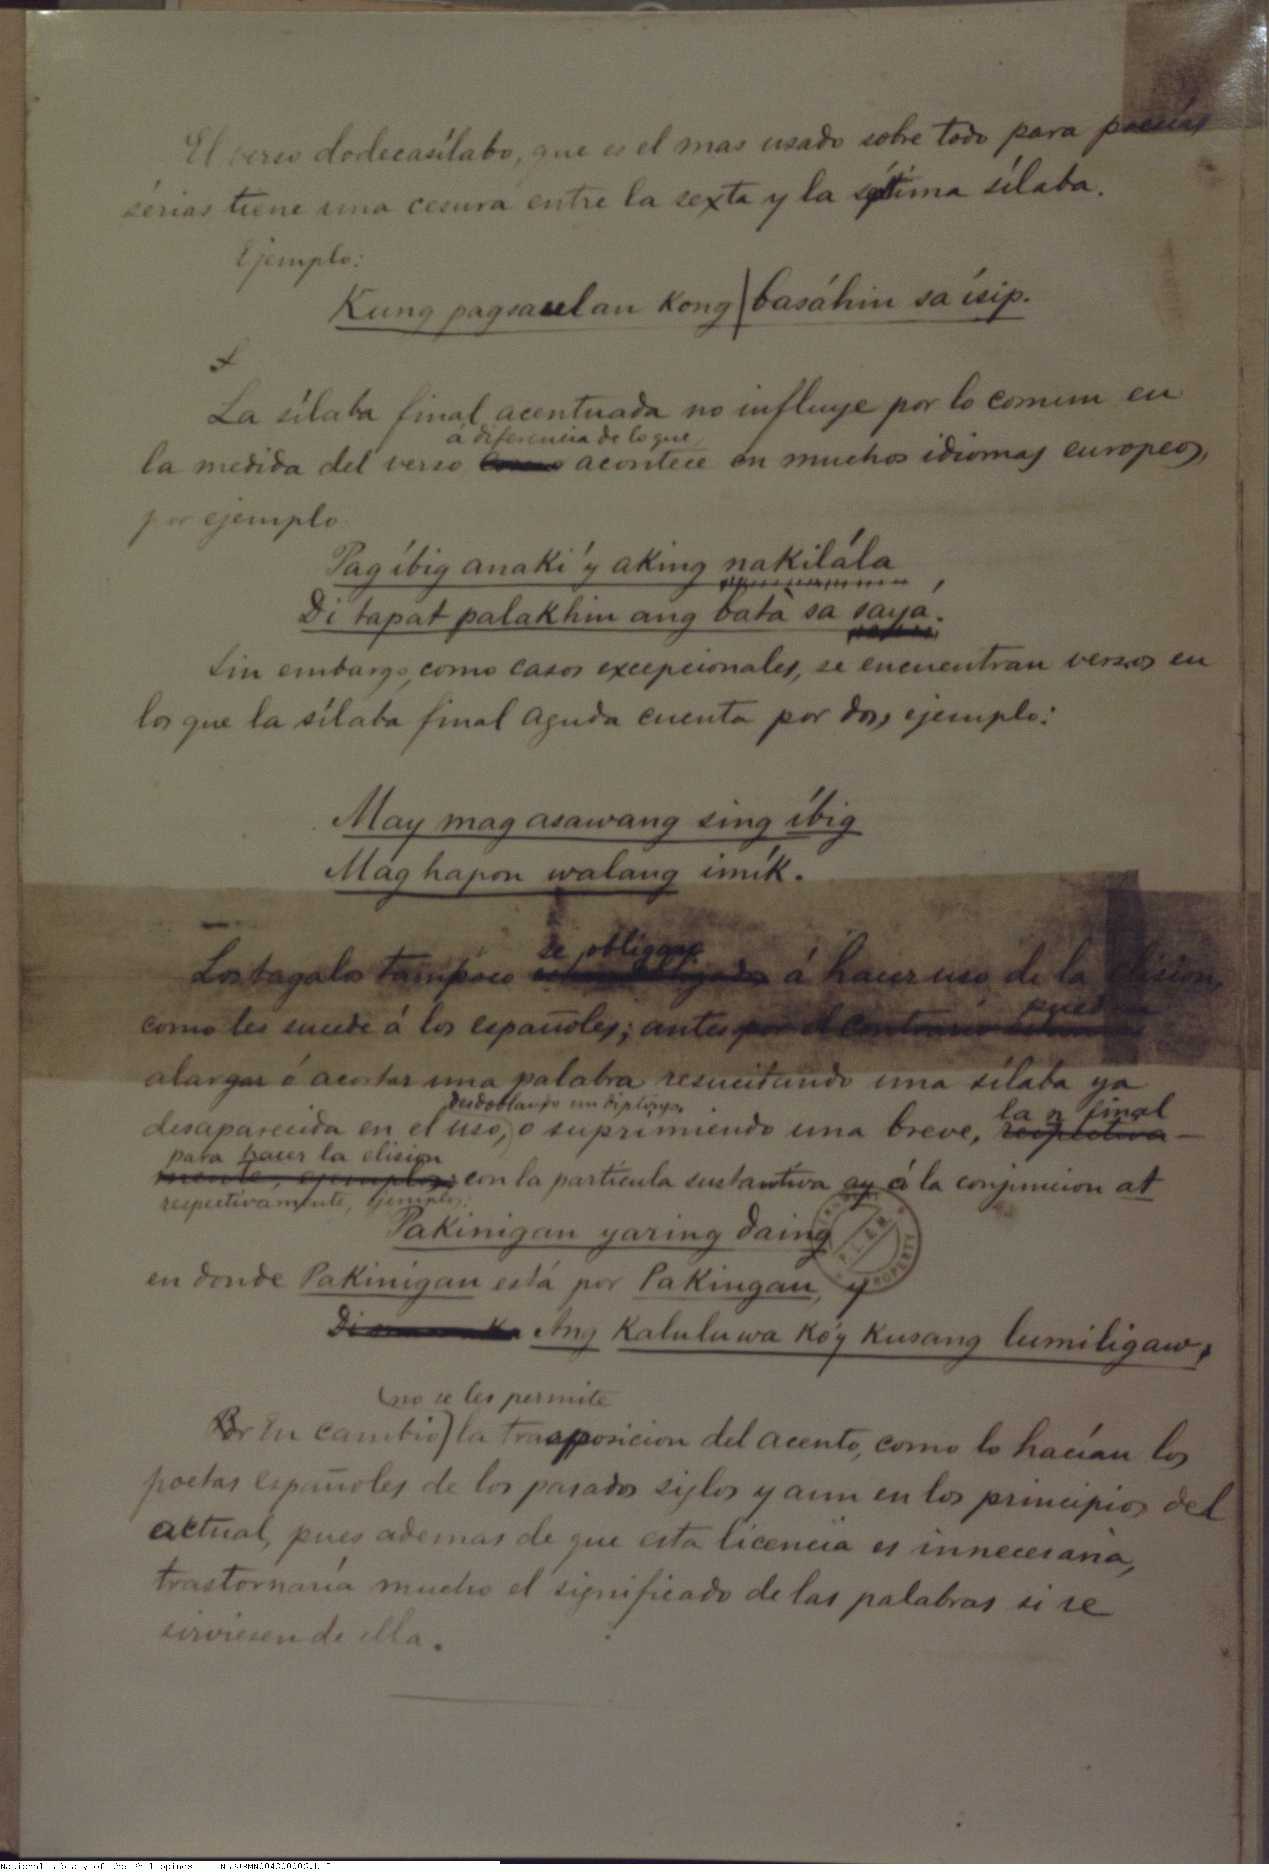 El verso dodecasílabo, que es el mas usado sobre todo para poesías
sérias tiene una cesura entre la sexta y la sétima sílaba.
Ejemplo:
Kung pagsaulan kong | basáhin sa ísip.
La sílaba final acentuada no influye por lo comun en
a diferencia de lo que
la medida del verso acontece en muchos idiomas europeos,
por ejemplo
Pag íbig anaki'y aking nakilála
Di tapat palakhin ang batà sa sayá.
Sin embargo, como casos excepcionales, se encuentran versos en
los que la sílaba final aguda cuenta por dos, ejemplo:
May mag asawang sing íbig
Maghapon walang imík.
se obligan
Los tagalos tampoco á hacer uso de la elision,
pueden
como les sucede á los españoles; antes por el contrario
alargar ó acortar una palabra resucitando una sílaba ya
desdoblando un diptongo,
desaparecida en el uso, o suprimiendo una breve, respectiva-
la n final
para hacer la elision
mente, ejemplos: con la partícula sustantiva ay ó la conjuncion at
respectivamente, ejemplos:
Pakinigan yaring daing
en donde Pakinigan está por Pakingan, y
Ang Kaluluwa ko'y kusang lumiligaw,
(no se les permite
En cambio) la trasposicion del acento, como lo hacían los
poetas españoles de los pasados siglos y aun en los principios del
actual, pues ademas de que esta licencia es innecesaria,
trastornaría mucho el significado de las palabras si se
sirviesen de ella.
PROPERTY
National Library of the Philippines